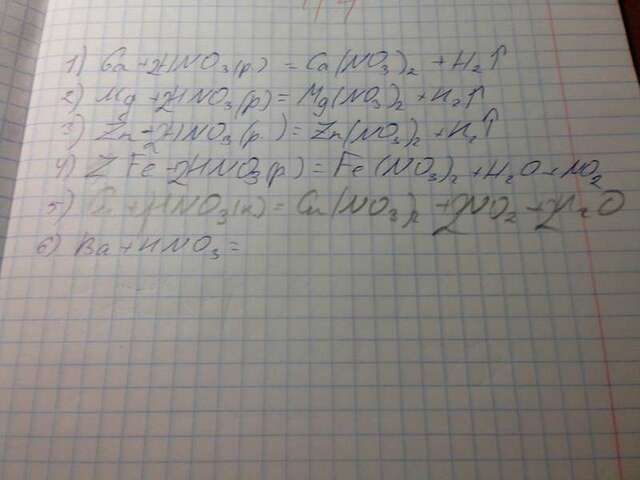 1) Ca + 2HNO₃(р) = Ca(NO₃)₂ + H₂↑
2) Mg + 2HNO₃(р) = Mg(NO₃)₂ + H₂↑
3) Zn + 2HNO₃(р.) = Zn(NO₃)₂ + H₂↑
4) Fe + 2HNO₃(р) = Fe(NO₃)₂ + H₂O + NO₂
5) + HNO₃(к) = Cu(NO₃)₂ + 2NO₂ + 2H₂O
6) Ba + HNO₃ =